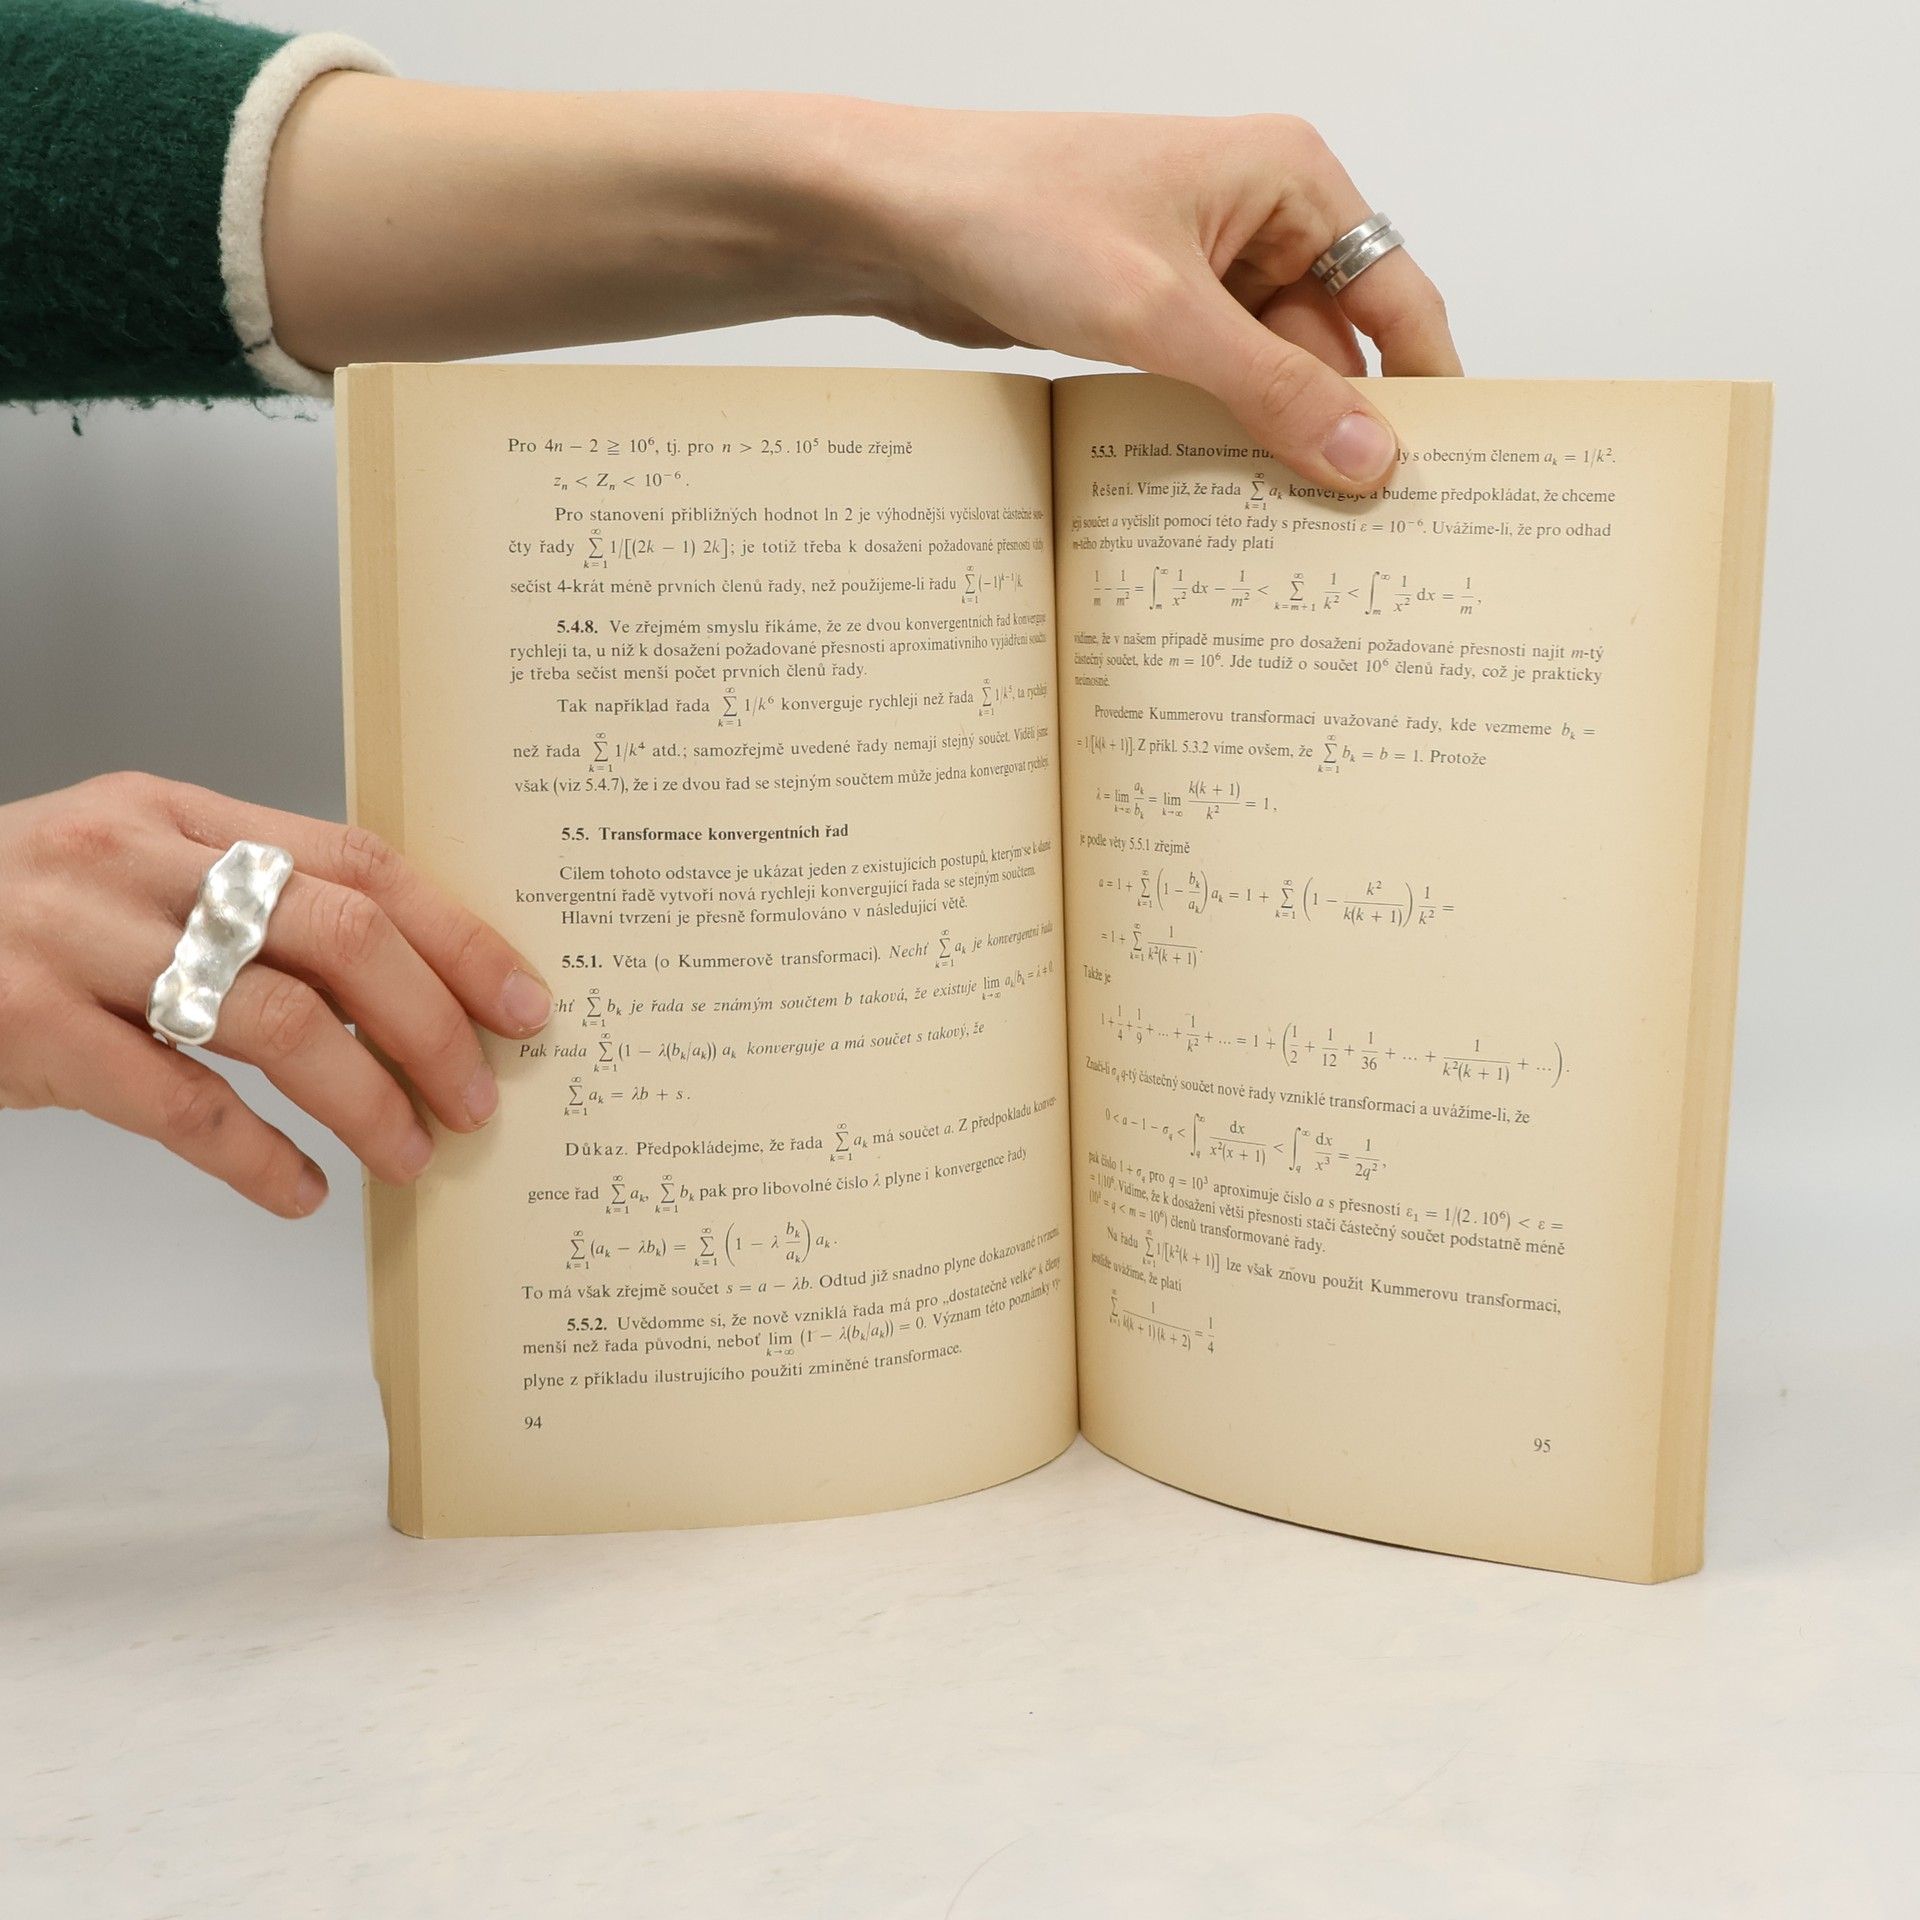 Pro 4n − 2 ≧ 10⁶, tj. pro n > 2,5 . 10⁵ bude zřejmě
zₙ < Zₙ < 10⁻⁶ .
Pro stanovení přibližných hodnot ln 2 je výhodnější vyčíslovat částečné sou-
čty řady ∑_{k=1}^∞ 1/[(2k − 1) 2k]; je totiž třeba k dosažení požadované přesnosti vždy
sečíst 4-krát méně prvních členů řady, než použijeme-li řadu ∑_{k=1}^∞ (−1)^{k−1}/k.
5.4.8. Ve zřejmém smyslu říkáme, že ze dvou konvergentních řad konverguje
rychleji ta, u níž k dosažení požadované přesnosti aproximativního vyjádření součtu
je třeba sečíst menší počet prvních členů řady.
Tak například řada ∑_{k=1}^∞ 1/k⁶ konverguje rychleji než řada ∑_{k=1}^∞ 1/k⁵, ta rychleji
než řada ∑_{k=1}^∞ 1/k⁴ atd.; samozřejmě uvedené řady nemají stejný součet. Viděli jsme
však (viz 5.4.7), že i ze dvou řad se stejným součtem může jedna konvergovat rychleji.
5.5. Transformace konvergentních řad
Cílem tohoto odstavce je ukázat jeden z existujících postupů, kterým se k dané
konvergentní řadě vytvoří nová rychleji konvergující řada se stejným součtem.
Hlavní tvrzení je přesně formulováno v následující větě.
5.5.1. Věta (o Kummerově transformaci). Nechť ∑_{k=1}^∞ aₖ je konvergentní řada
∑_{k=1}^∞ bₖ je řada se známým součtem b taková, že existuje lim_{k→∞} aₖ/bₖ = λ ≠ 0.
Pak řada ∑_{k=1}^∞ (1 − λ(bₖ/aₖ)) aₖ konverguje a má součet s takový, že
∑_{k=1}^∞ aₖ = λb + s .
Důkaz. Předpokládejme, že řada ∑_{k=1}^∞ aₖ má součet a. Z předpokladu konver-
gence řad ∑_{k=1}^∞ aₖ, ∑_{k=1}^∞ bₖ pak pro libovolné číslo λ plyne i konvergence řady
∑_{k=1}^∞ (aₖ − λbₖ) = ∑_{k=1}^∞ (1 − λ bₖ/aₖ) aₖ .
To má však zřejmě součet s = a − λb. Odtud již snadno plyne dokazované tvrzení.
5.5.2. Uvědomme si, že nově vzniklá řada má pro „dostatečně velké“ k členy
menší než řada původní, neboť lim_{k→∞} (1 − λ(bₖ/aₖ)) = 0. Význam této poznámky vy-
plyne z příkladu ilustrujícího použití zmíněné transformace.
94
5.5.3. Příklad. Stanovíme s obecným členem aₖ = 1/k².
Řešení. Víme již, že řada ∑_{k=1}^∞ aₖ konverguje a budeme předpokládat, že chceme
její součet a vyčíslit pomocí této řady s přesností ε = 10⁻⁶. Uvážíme-li, že pro odhad
m-tého zbytku uvažované řady platí
1/m − 1/m² = ∫_m^∞ 1/x² dx − 1/m² < ∑_{k=m+1}^∞ 1/k² < ∫_m^∞ 1/x² dx = 1/m ,
vidíme, že v našem případě musíme pro dosažení požadované přesnosti najít m-tý
částečný součet, kde m = 10⁶. Jde tudíž o součet 10⁶ členů řady, což je prakticky
neúnosné.
Provedeme Kummerovu transformaci uvažované řady, kde vezmeme bₖ =
= 1/[k(k + 1)]. Z příkl. 5.3.2 víme ovšem, že ∑_{k=1}^∞ bₖ = b = 1. Protože
λ = lim_{k→∞} aₖ/bₖ = lim_{k→∞} k(k + 1)/k² = 1 ,
je podle věty 5.5.1 zřejmě
a = 1 + ∑_{k=1}^∞ (1 − bₖ/aₖ) aₖ = 1 + ∑_{k=1}^∞ (1 − k²/(k(k + 1))) 1/k² =
= 1 + ∑_{k=1}^∞ 1/(k²(k + 1)) .
Takže je
1 + 1/4 + 1/9 + ... + 1/k² + ... = 1 + (1/2 + 1/12 + 1/36 + ... + 1/(k²(k + 1)) + ...) .
Značí-li σ_q q-tý částečný součet nové řady vzniklé transformací a uvážíme-li, že
0 < a − 1 − σ_q < ∫_q^∞ dx/(x²(x + 1)) < ∫_q^∞ dx/x³ = 1/(2q²) ,
pak číslo 1 + σ_q pro q = 10³ aproximuje číslo a s přesností ε₁ = 1/(2 . 10⁶) < ε =
= 1/10⁶. Vidíme, že k dosažení větší přesnosti stačí částečný součet podstatně méně
(10³ = q < m = 10⁶) členů transformované řady.
Na řadu ∑_{k=1}^∞ 1/[k²(k + 1)] lze však znovu použít Kummerovu transformaci,
jestliže uvážíme, že platí
∑_{k=1}^∞ 1/(k(k + 1)(k + 2)) = 1/4
95